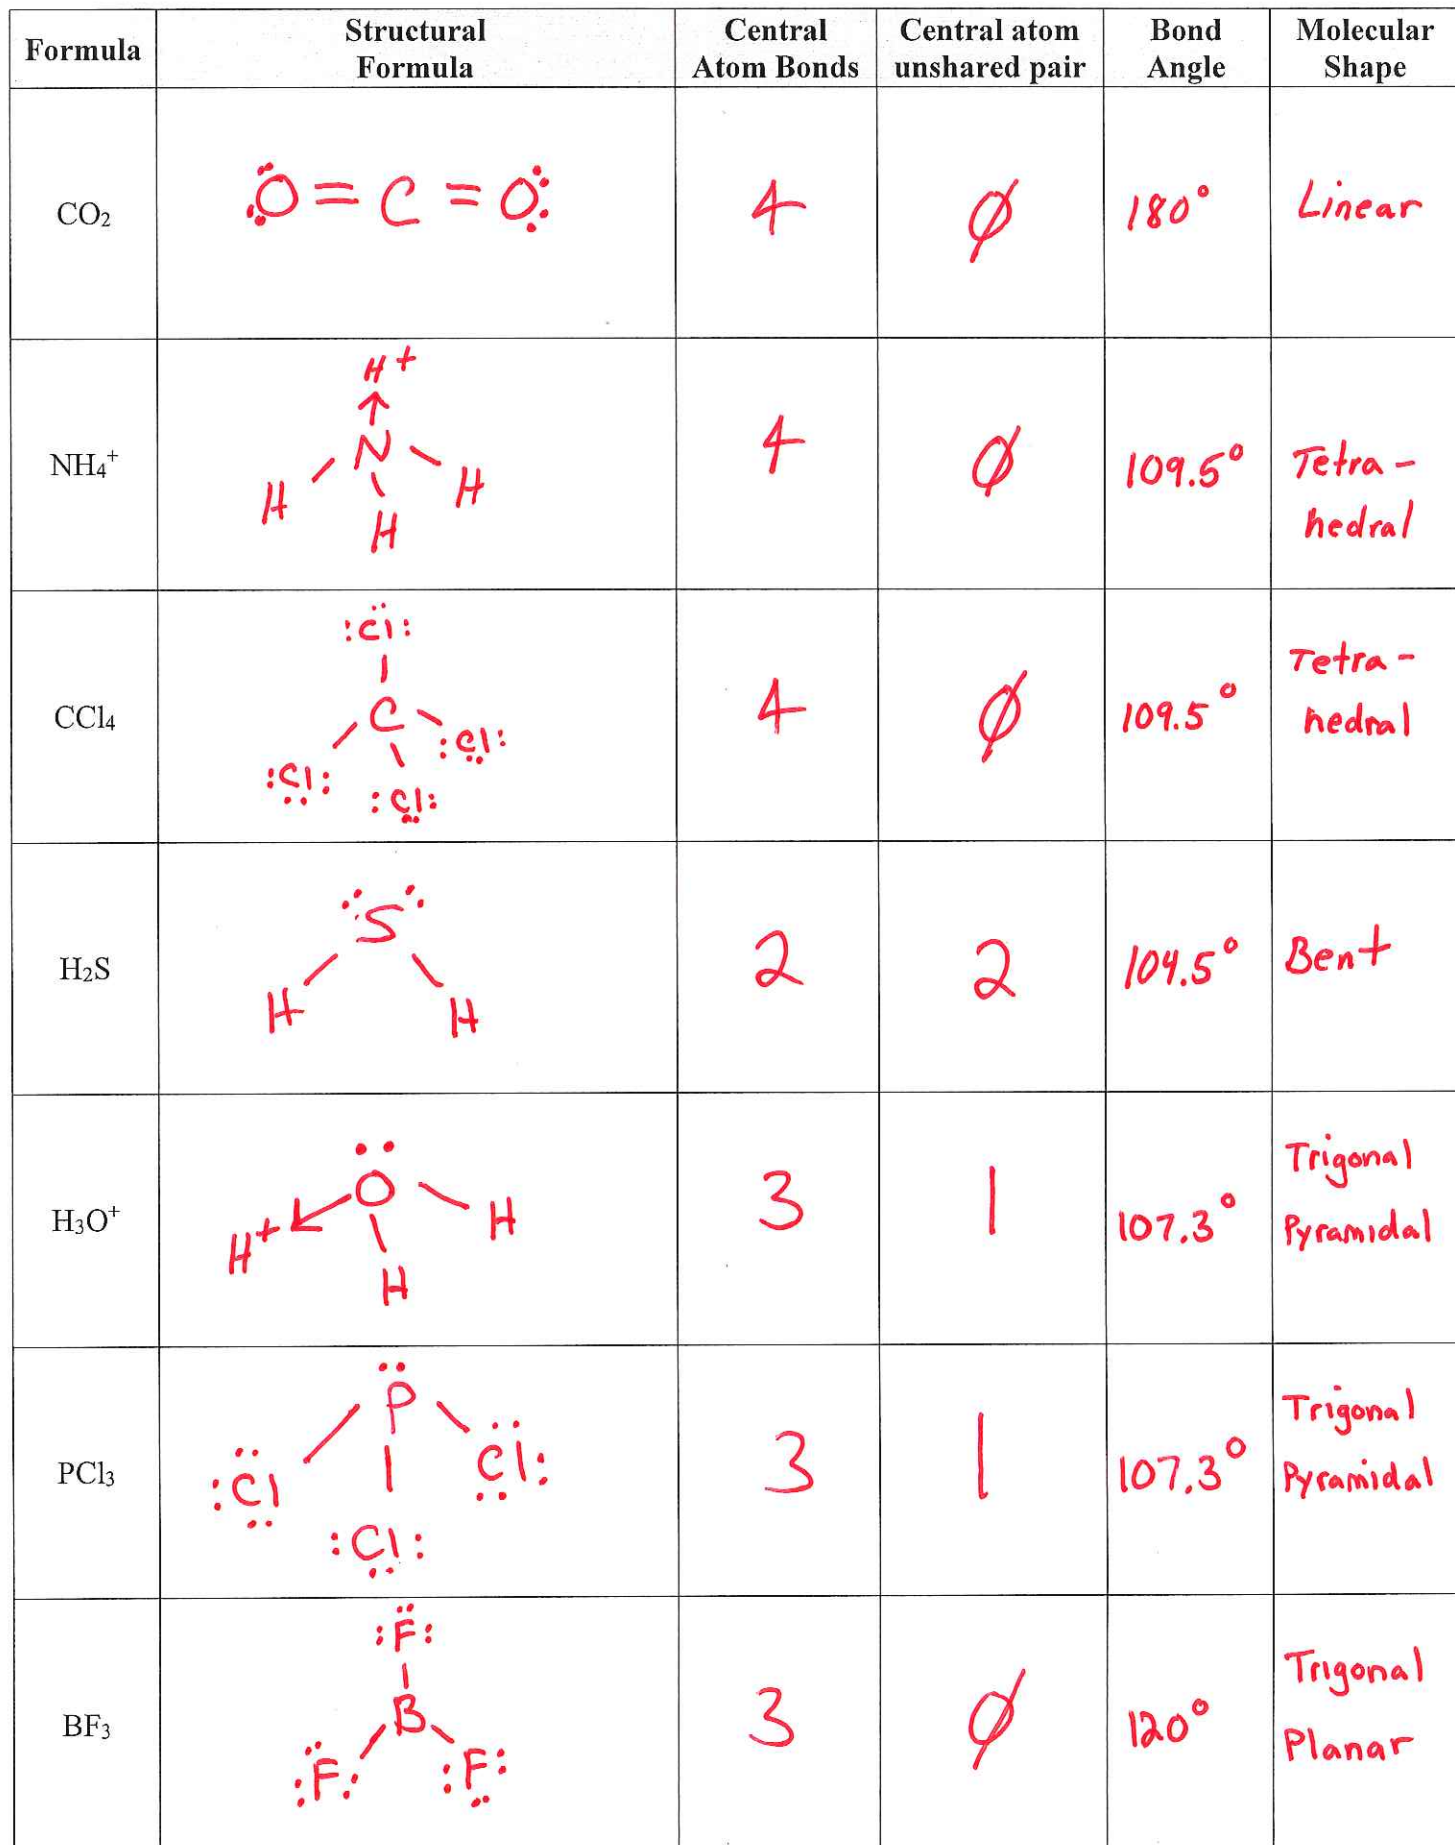 Formula Structural Formula Central Atom Bonds Central atom unshared pair Bond Angle Molecular Shape
CO₂ :Ö=C=Ö: 4 ∅ 180° Linear
H⁺
↑
NH₄⁺ N 4 ∅ 109.5° Tetra-
H H hedral
H
:C̈l:
CCl₄ C 4 ∅ 109.5° Tetra-
:Cl: hedral
:Cl:
:Cl:
H₂S :S: 2 2 104.5° Bent
H H
H₃O⁺ Ö 3 1 107.3° Trigonal
H⁺ H Pyramidal
H
PCl₃ P̈ 3 1 107.3° Trigonal
:Cl :Cl: Pyramidal
:Cl:
:F̈:
BF₃ B 3 ∅ 120° Trigonal
:F̈: :F: Planar